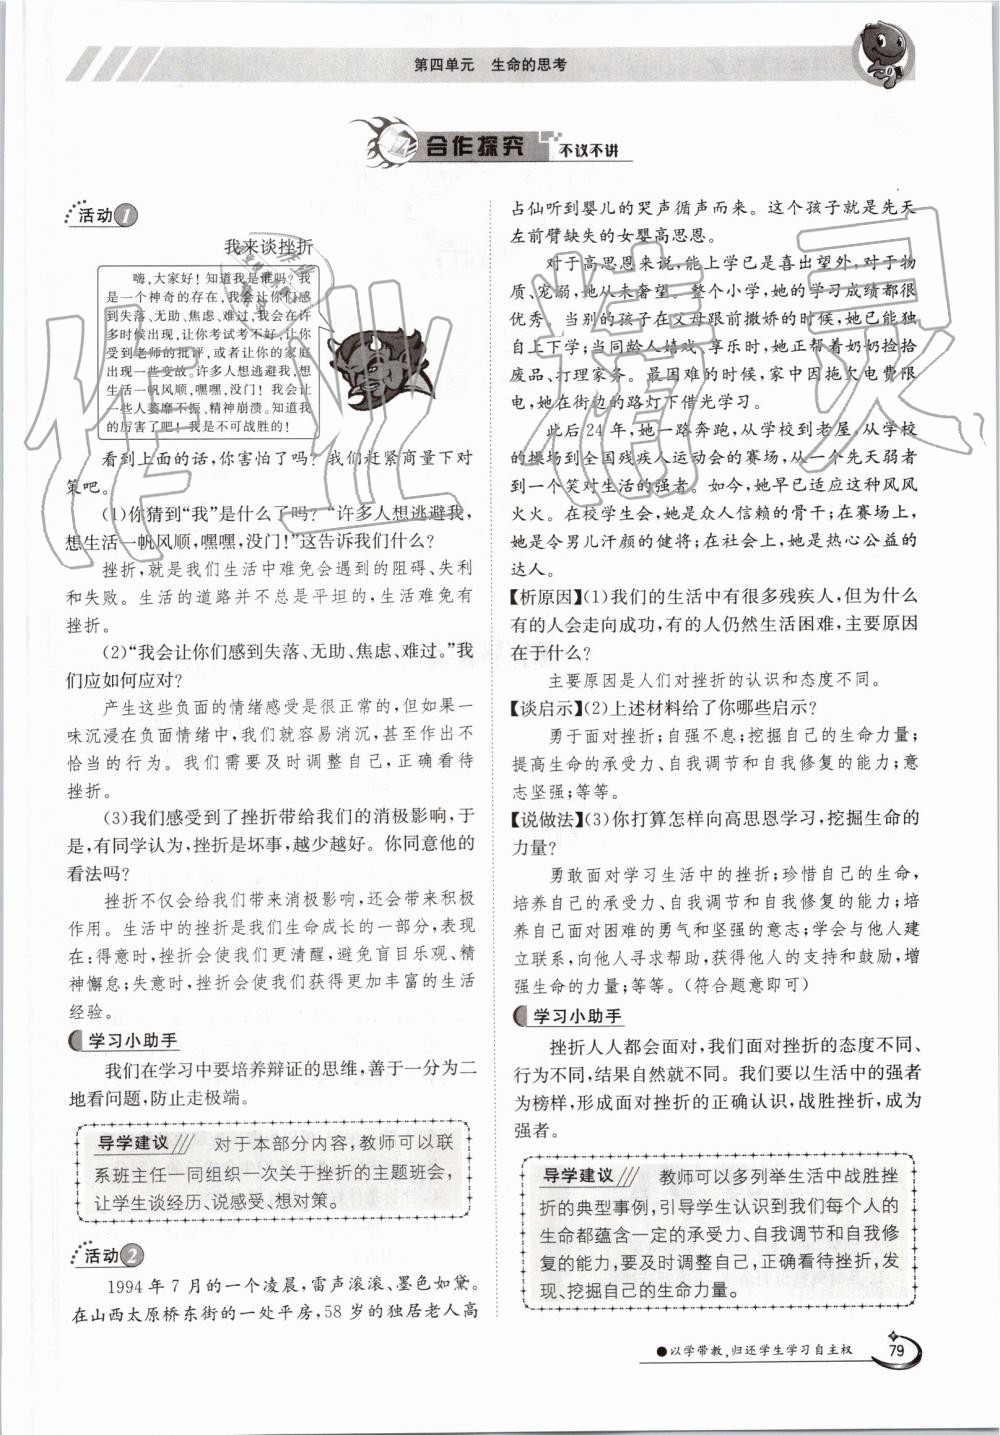 第四单元　生命的思考
合作探究 不议不讲
活动1
我来谈挫折
嗨,大家好!知道我是谁吗?我
是一个神奇的存在,我会让你们感
到失落、无助、焦虑、难过,我会在许
多时候出现,让你考试考不好,让你
受到老师的批评,或者让你的家庭
出现一些变故。许多人想逃避我,想
生活一帆风顺,嘿嘿,没门!我会让
一些人萎靡不振、精神崩溃。知道我
的厉害了吧!我是不可战胜的!
看到上面的话,你害怕了吗?我们赶紧商量下对
策吧。
(1)你猜到“我”是什么了吗?“许多人想逃避我,
想生活一帆风顺,嘿嘿,没门!”这告诉我们什么?
挫折,就是我们生活中难免会遇到的阻碍、失利
和失败。生活的道路并不总是平坦的,生活难免有
挫折。
(2)“我会让你们感到失落、无助、焦虑、难过。”我
们应如何应对?
产生这些负面的情绪感受是很正常的,但如果一
味沉浸在负面情绪中,我们就容易消沉,甚至作出不
恰当的行为。我们需要及时调整自己,正确看待
挫折。
(3)我们感受到了挫折带给我们的消极影响,于
是,有同学认为,挫折是坏事,越少越好。你同意他的
看法吗?
挫折不仅会给我们带来消极影响,还会带来积极
作用。生活中的挫折是我们生命成长的一部分,表现
在:得意时,挫折会使我们更清醒,避免盲目乐观、精
神懈怠;失意时,挫折会使我们获得更加丰富的生活
经验。
学习小助手
我们在学习中要培养辩证的思维,善于一分为二
地看问题,防止走极端。
导学建议 对于本部分内容,教师可以联
系班主任一同组织一次关于挫折的主题班会,
让学生谈经历、说感受、想对策。
活动2
1994年7月的一个凌晨,雷声滚滚、墨色如黛。
在山西太原桥东街的一处平房,58岁的独居老人高
占仙听到婴儿的哭声循声而来。这个孩子就是先天
左前臂缺失的女婴高思恩。
对于高思恩来说,能上学已是喜出望外,对于物
质、宠溺,她从未奢望。整个小学,她的学习成绩都很
优秀。当别的孩子在父母跟前撒娇的时候,她已能独
自上下学;当同龄人嬉戏、享乐时,她正帮着奶奶捡拾
废品、打理家务。最困难的时候,家中因拖欠电费限
电,她在街边的路灯下借光学习。
此后24年,她一路奔跑,从学校到老屋,从学校
的操场到全国残疾人运动会的赛场,从一个先天弱者
到一个笑对生活的强者。如今,她早已适应这种风风
火火。在校学生会,她是众人信赖的骨干;在赛场上,
她是令男儿汗颜的健将;在社会上,她是热心公益的
达人。
【析原因】(1)我们的生活中有很多残疾人,但为什么
有的人会走向成功,有的人仍然生活困难,主要原因
在于什么?
主要原因是人们对挫折的认识和态度不同。
【谈启示】(2)上述材料给了你哪些启示?
勇于面对挫折;自强不息;挖掘自己的生命力量;
提高生命的承受力、自我调节和自我修复的能力;意
志坚强;等等。
【说做法】(3)你打算怎样向高思恩学习,挖掘生命的
力量?
勇敢面对学习生活中的挫折;珍惜自己的生命,
培养自己的承受力、自我调节和自我修复的能力;培
养自己面对困难的勇气和坚强的意志;学会与他人建
立联系,向他人寻求帮助,获得他人的支持和鼓励,增
强生命的力量;等等。(符合题意即可)
学习小助手
挫折人人都会面对,我们面对挫折的态度不同、
行为不同,结果自然就不同。我们要以生活中的强者
为榜样,形成面对挫折的正确认识,战胜挫折,成为
强者。
导学建议 教师可以多列举生活中战胜挫
折的典型事例,引导学生认识到我们每个人的
生命都蕴含一定的承受力、自我调节和自我修
复的能力,要及时调整自己,正确看待挫折,发
现、挖掘自己的生命力量。
●以学带教,归还学生学习自主权 79
作业精灵